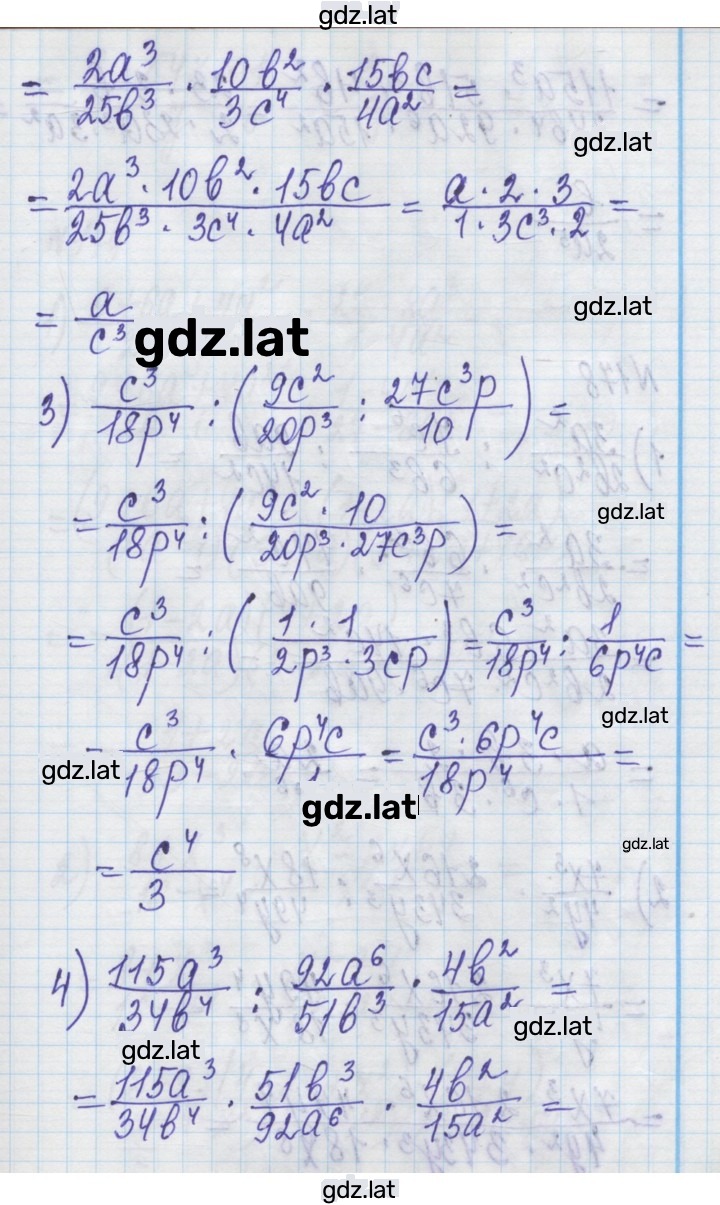 gdz.lat
= 2a³/25b³ · 10b²/3c⁴ · 15bc/4a² =
gdz.lat
= 2a³·10b²·15bc/25b³·3c⁴·4a² = a·2·3/1·3c³·2 =
= a/c³
gdz.lat
gdz.lat
3) c³/18p⁴ : (9c²/20p³ : 27c³p/10) =
= c³/18p⁴ : (9c²·10/20p³·27c³p) =
gdz.lat
= c³/18p⁴ : (1·1/2p³·3cp) = c³/18p⁴ : 1/6p⁴c =
gdz.lat
- c³/18p⁴ · 6p⁴c/1 = c³·6p⁴c/18p⁴ =
gdz.lat
gdz.lat
= c⁴/3
gdz.lat
4) 115a³/34b⁴ : 92a⁶/51b³ · 4b²/15a² =
gdz.lat
gdz.lat
= 115a³/34b⁴ · 51b³/92a⁶ · 4b²/15a² =
gdz.lat